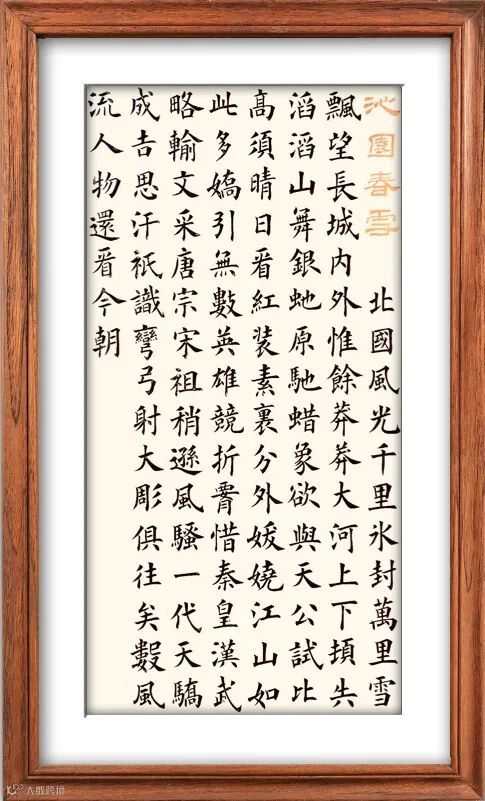 沁園春雪 北國風光千里氷封萬里雪
飄望長城内外惟餘莽莽大河上下頓失
滔滔山舞銀虵原馳蜡象欲與天公試比
髙須晴日看紅裝素裏分外媛嬈江山如
此多嬌引無數英雄競折惜秦皇漢武
略輸文采唐宗宋祖稍遜風騷一代天驕
成吉思汗祇識彎弓射大彫俱往矣數風
流人物還看今朝
大数跨境